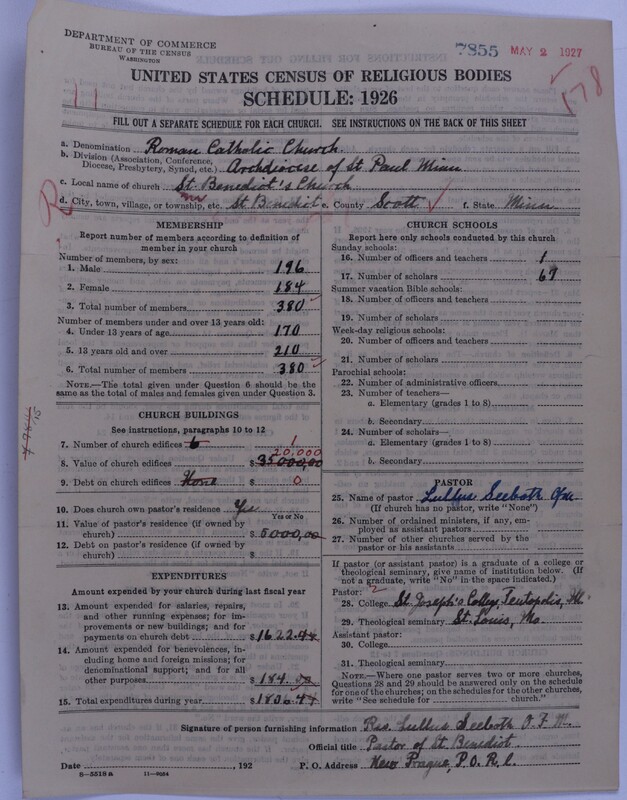 DEPARTMENT OF COMMERCE
BUREAU OF THE CENSUS
WASHINGTON
7855 MAY 2 1927
178
11
UNITED STATES CENSUS OF RELIGIOUS BODIES
SCHEDULE: 1926
FILL OUT A SEPARATE SCHEDULE FOR EACH CHURCH. SEE INSTRUCTIONS ON THE BACK OF THIS SHEET
a. Denomination Roman Catholic Church
b. Division (Association, Conference, Diocese, Presbytery, Synod, etc.) Archdiocese of St Paul Minn
c. Local name of church St. Benedict's Church
d. City, town, village, or township, etc. St Benedict e. County Scott f. State Minn
R
MEMBERSHIP
Report number of members according to definition of
member in your church
Number of members, by sex:
1. Male 196
2. Female 184
3. Total number of members 380
Number of members under and over 13 years old:
4. Under 13 years of age 170
5. 13 years old and over 210
6. Total number of members 380
NOTE.—The total given under Question 6 should be
same as the total of males and females given under Question 3.
CHURCH BUILDINGS
See instructions, paragraphs 10 to 12
7. Number of church edifices 6 1
20,000
8. Value of church edifices $ 35000,00
9. Debt on church edifices None $ 0
10. Does church own pastor's residence Yes
Yes or No
11. Value of pastor's residence (if owned by
church) $ 5000,00
12. Debt on pastor's residence (if owned by
church) $
EXPENDITURES
Amount expended by your church during last fiscal year
13. Amount expended for salaries, repairs,
and other running expenses; for im-
provements or new buildings; and for
payments on church debt $ 1622.44
14. Amount expended for benevolences,
including home and foreign missions; for
denominational support; and for all
other purposes $ 184.00
15. Total expenditures during year $ 1806.44
CHURCH SCHOOLS
Report here only schools conducted by this church
Sunday schools:
16. Number of officers and teachers 1
17. Number of scholars 69
Summer vacation Bible schools:
18. Number of officers and teachers
19. Number of scholars
Week-day religious schools:
20. Number of officers and teachers
21. Number of scholars
Parochial schools:
22. Number of administrative officers
23. Number of teachers—
a. Elementary (grades 1 to 8)
b. Secondary
24. Number of scholars—
a. Elementary (grades 1 to 8)
b. Secondary
PASTOR
25. Name of pastor Lullus Seeboth Ofm
(If church has no pastor, write "None")
26. Number of ordained ministers, if any, em-
ployed as assistant pastors
27. Number of other churches served by the
pastor or his assistants
If pastor (or assistant pastor) is a graduate of a college or
theological seminary, give name of institution below. (If
not a graduate, write "No" in the space indicated.)
Pastor: 2
28. College St. Joseph's College, Teutopolis, Ill.
29. Theological seminary St. Louis, Mo.
Assistant pastor:
30. College
31. Theological seminary
NOTE.—Where one pastor serves two or more churches,
Questions 28 and 29 should be answered only on the schedule
for one of the churches; on the schedules for the other churches,
write "See schedule for church."
Signature of person furnishing information Rev. Lullus Seeboth O.F.M.
Official title Pastor of St. Benedict
Date , 192 P. O. Address New Prague, P.O. R.1.
8-5518a 11-9064